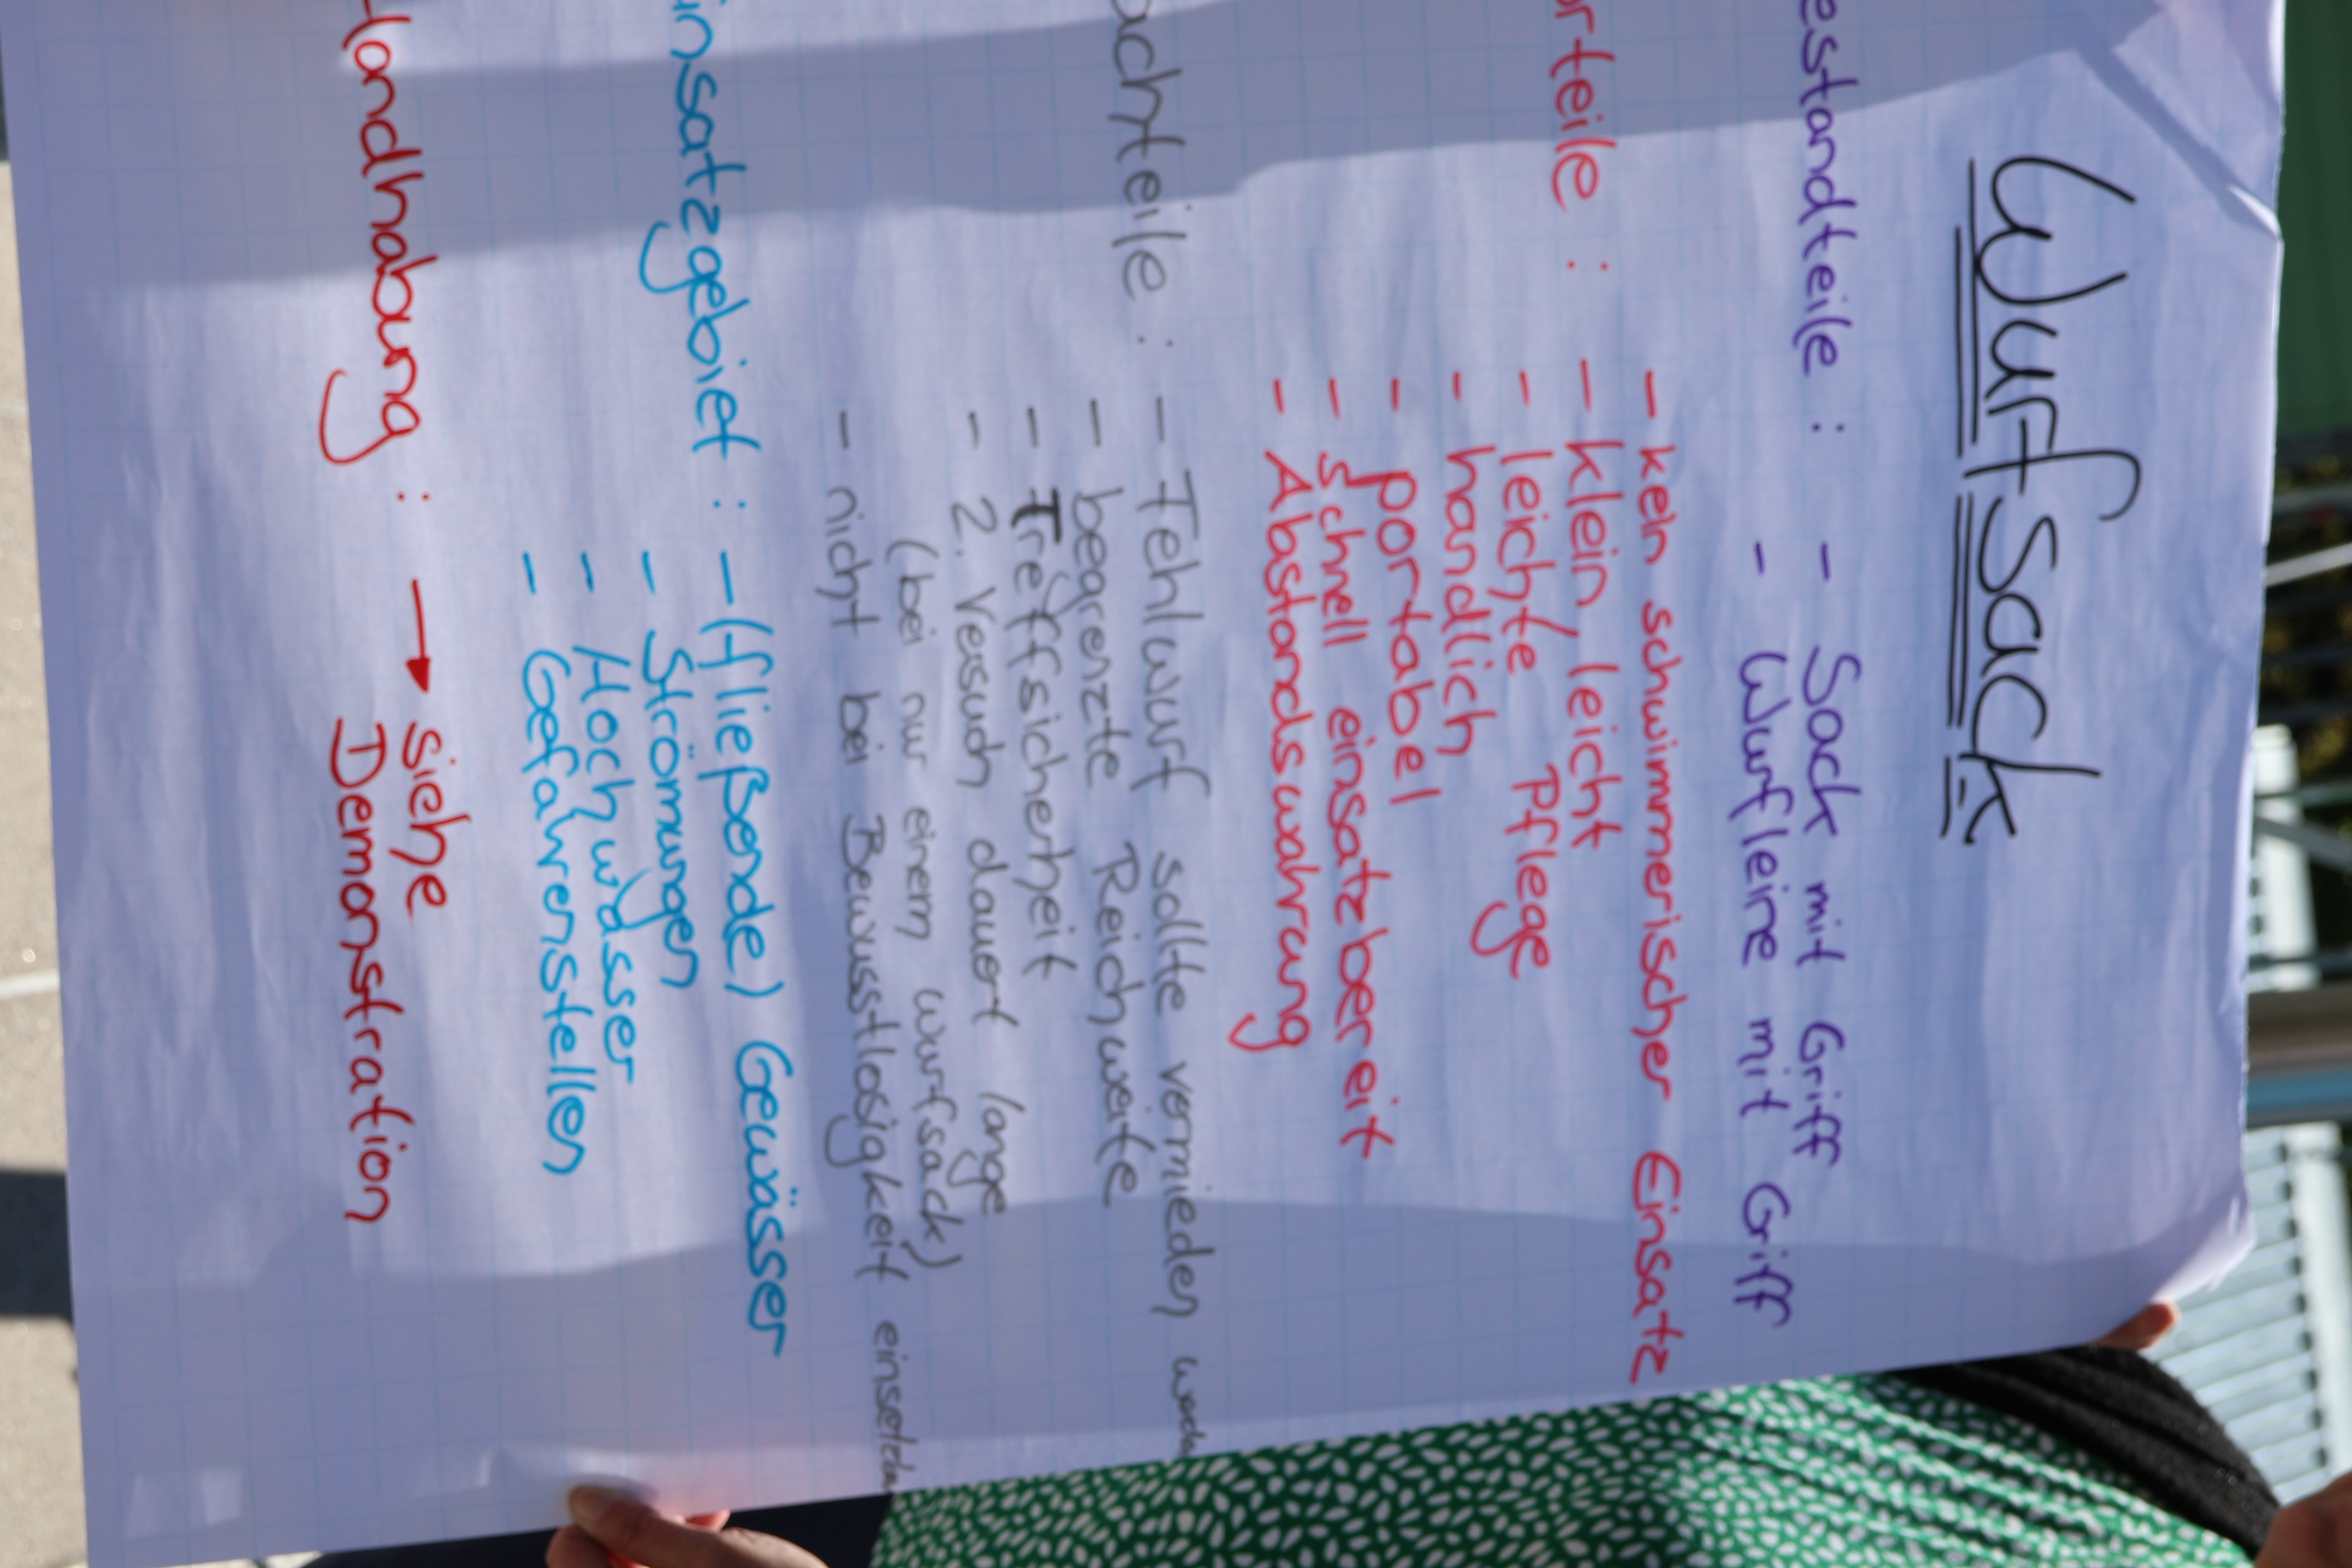 Wurfsack
estandteile : - Sack mit Griff
- Wurfleine mit Griff
orteile : - kein schwimmerischer Einsatz
- klein, leicht
- leichte Pflege
- handlich
- portabel
- schnell einsatzbereit
- Abstandswahrung
achteile : - Fehlwurf sollte vermieden werden
- begrenzte Reichweite
- Treffsicherheit
- 2. Versuch dauert lange
(bei nur einem Wurfsack)
- nicht bei Bewusstlosigkeit einsetzbar
insatzgebiet : - (fließende) Gewässer
- Strömungen
- Hochwasser
- Gefahrenstellen
Handhabung : → siehe
Demonstration